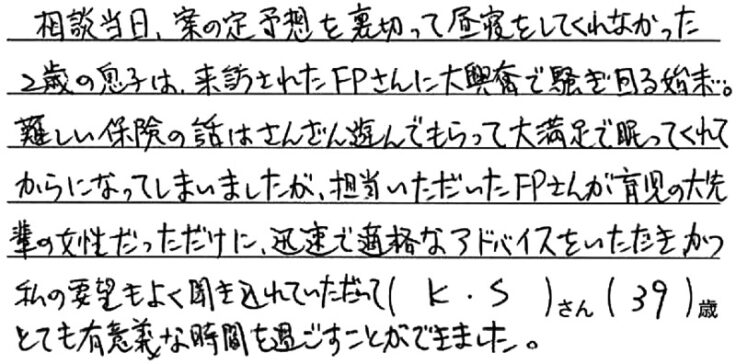 相談当日、案の定予想を裏切って昼寝をしてくれなかった
2歳の息子は、来訪されたFPさんに大興奮で騒ぎ回る始末…。
難しい保険の話はさんざん遊んでもらって大満足で眠ってくれて
からになってしまいましたが、担当いただいたFPさんが育児の大先
輩の女性だっただけに、迅速で適格なアドバイスをいただきかつ
私の要望もよく聞き入れていただいて( K・S )さん ( 39 )歳
とても有意義な時間を過ごすことができました。